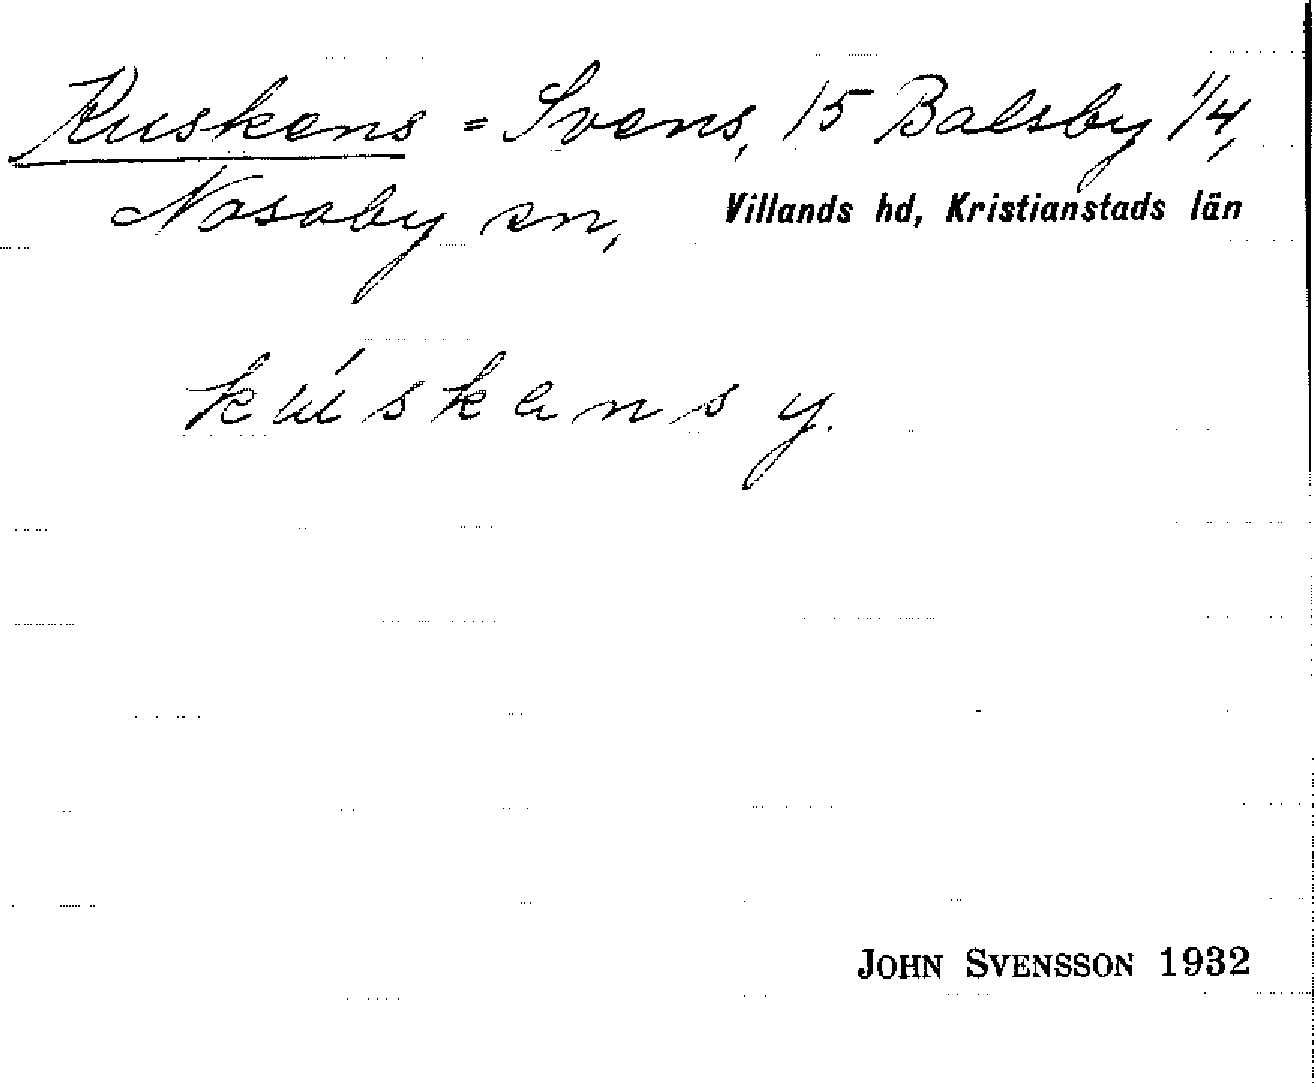 Kuskens = Svens, 15 Balsby 1/4,
Nosaby sn, Villands hd, Kristianstads län
kúskans y.
JOHN SVENSSON 1932